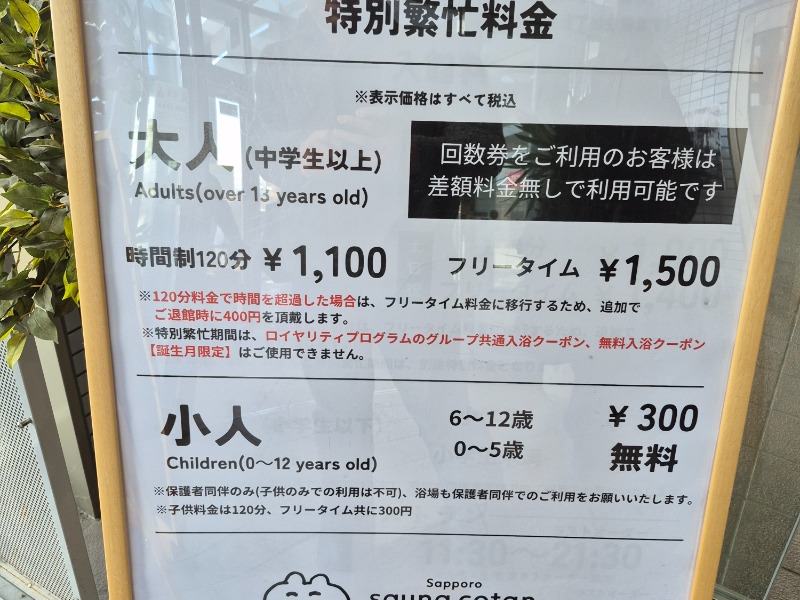 特別繁忙料金
※表示価格はすべて税込
大人(中学生以上)
Adults(over 13 years old)
回数券をご利用のお客様は
差額料金無しで利用可能です
時間制120分 ¥1,100
フリータイム ¥1,500
※120分料金で時間を超過した場合は、フリータイム料金に移行するため、追加で
ご退館時に400円を頂戴します。
※特別繁忙期間は、ロイヤリティプログラムのグループ共通入浴クーポン、無料入浴クーポン
【誕生月限定】はご使用できません。
小人
Children(0～12 years old)
6～12歳 ¥300
0～5歳 無料
※保護者同伴のみ(子供のみでの利用は不可)、浴場も保護者同伴でのご利用をお願いいたします。
※子供料金は120分、フリータイム共に300円
Sapporo
sauna cotan